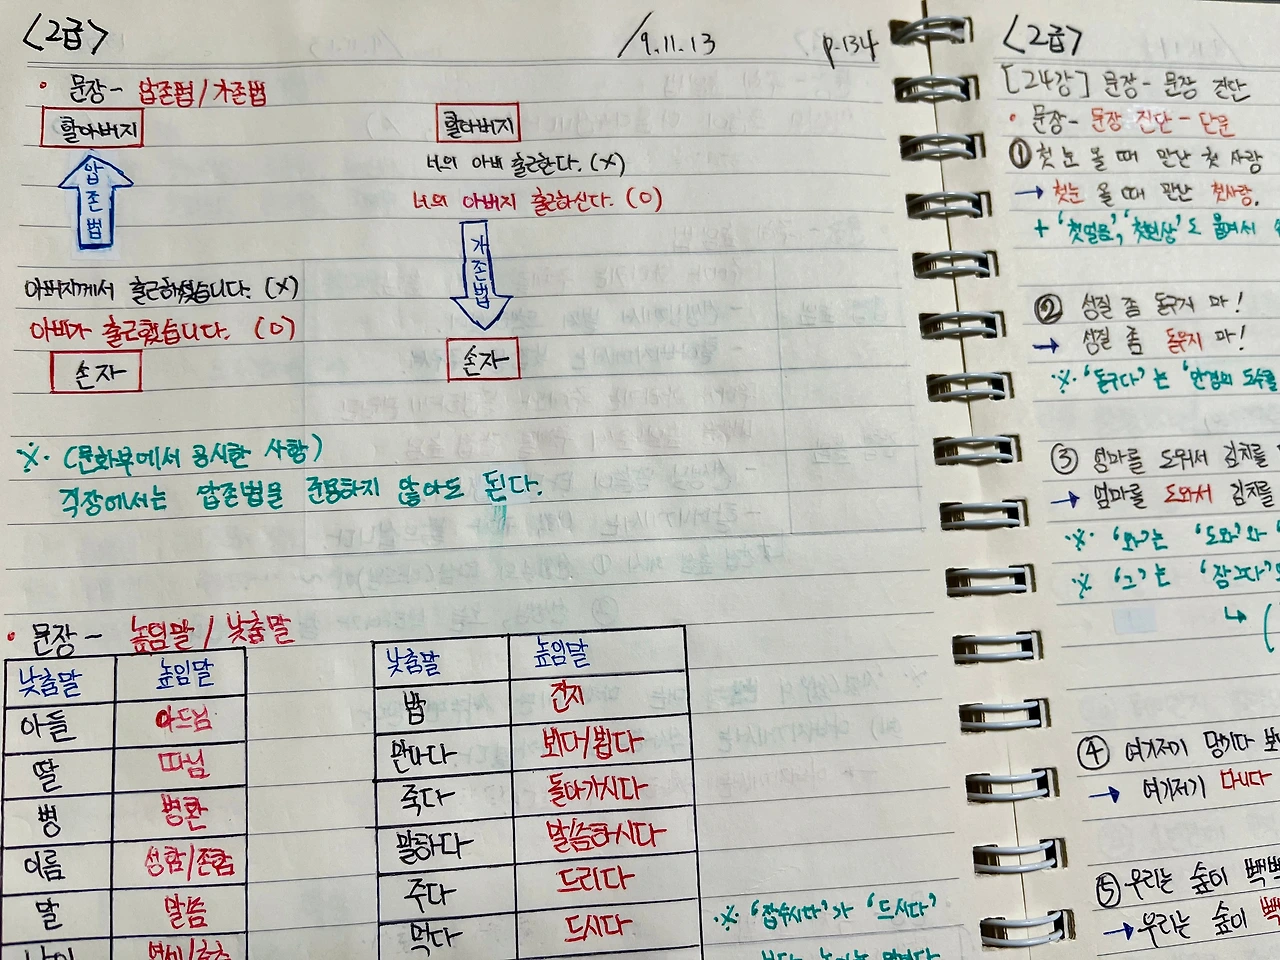 <2급>
19.11.13
p.134
• 문장 - 압존법/가존법
할아버지
압존법
아버지께서 출근하셨습니다. (X)
아비가 출근했습니다. (O)
손자
할아버지
너의 아비 출근한다. (X)
너의 아버지 출근하신다. (O)
가존법
손자
※. (문화부에서 공시한 사항)
직장에서는 압존법을 준용하지 않아도 된다.
• 문장 - 높임말 / 낮춤말
낮춤말 높임말
아들 아드님
딸 따님
병 병환
이름 성함/존함
말 말씀
나이 연세/춘추
낮춤말 높임말
밥 진지
만나다 뵈다/뵙다
죽다 돌아가시다
말하다 말씀하시다
주다 드리다
먹다 드시다
※. '잡수시다'가 '드시다'
보다
<2급>
[24강] 문장 - 문장 진단
• 문장 - 문장 진단 - 단문
① 첫 눈 올 때 만난 첫 사랑
→ 첫눈 올 때 만난 첫사랑.
+ '첫얼음', '첫인상'도 붙여서
② 성질 좀 돋구지 마!
→ 성질 좀 돋우지 마!
※. '돋구다'는 '안경의 도수를
③ 엄마를 도워서 김치를
→ 엄마를 도와서 김치를
※. '와'는 '도와'와
※ '그'는 '잠그다'
↳ (
④ 여기저기
→ 여기저기 다시다
⑤ 우리는 숲이
→ 우리는 숲이